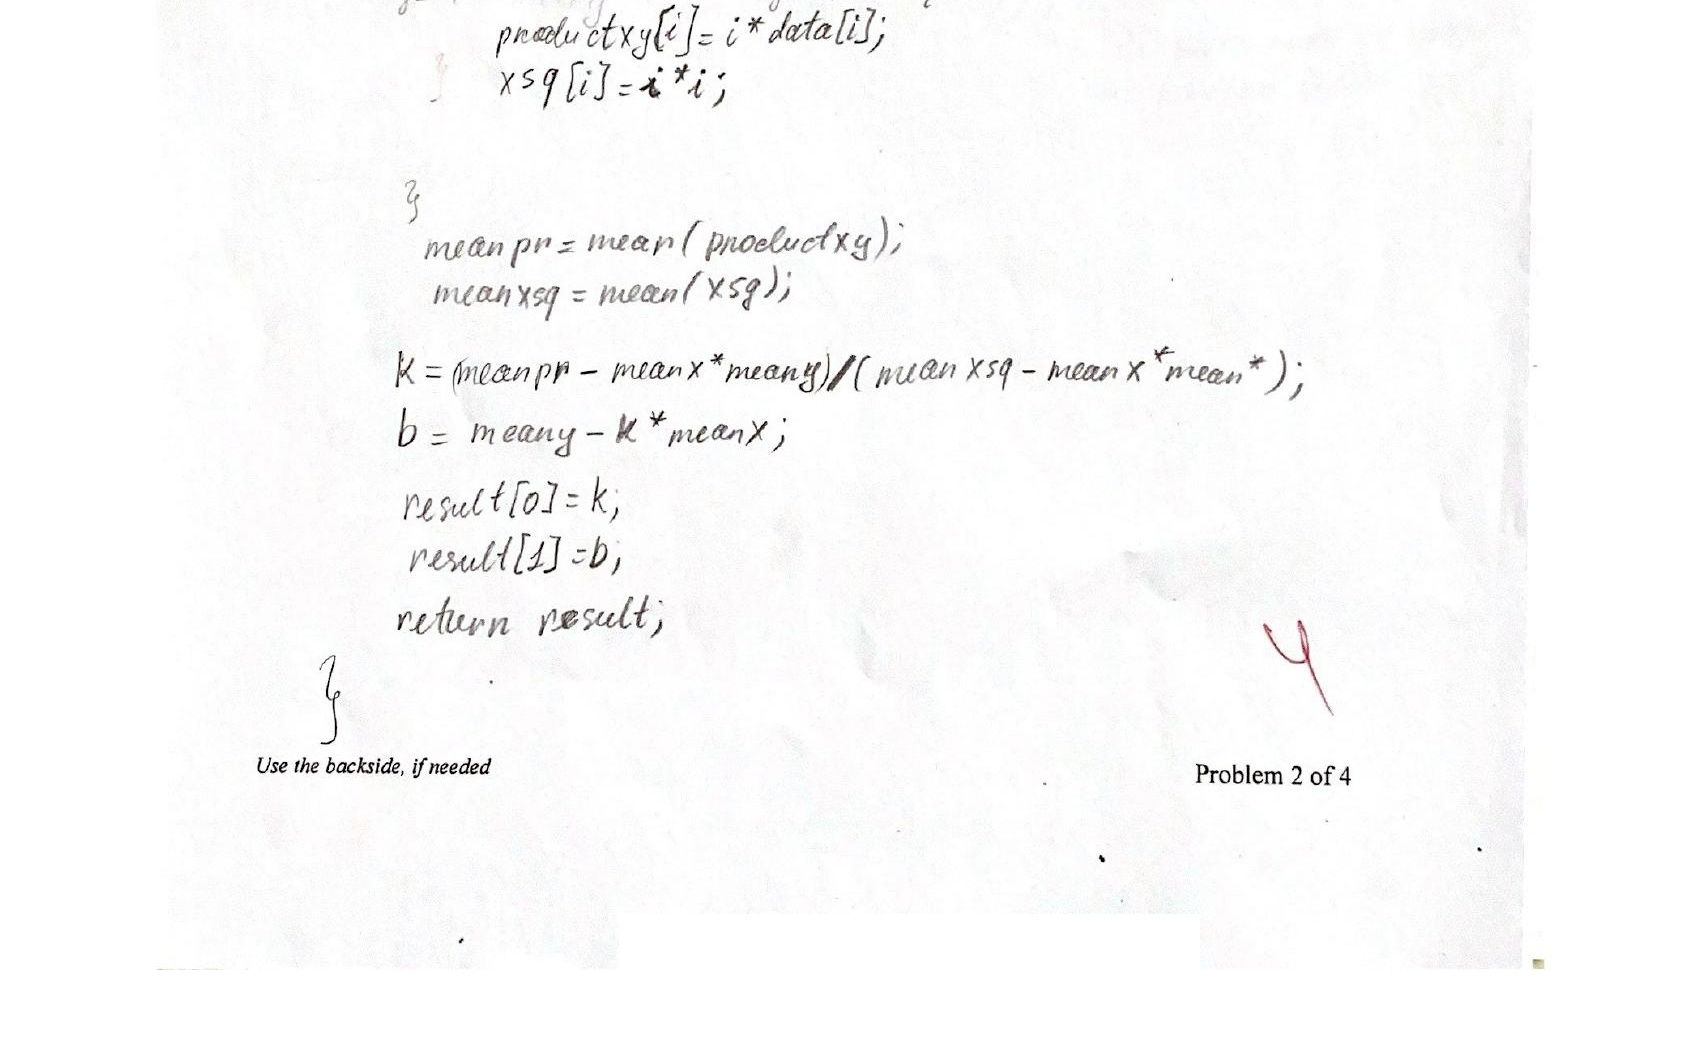 productxy[i]= i*data[i];
} xsq[i]=i*i;
}
meanpr = mean(productxy);
meanxsq = mean(xsq);
k = (meanpr - meanx*meany)/(meanxsq - meanx*mean*);
b = meany - k*meanx;
result[0]=k;
result[1]=b;
return result;
}
4
Use the backside, if needed
Problem 2 of 4